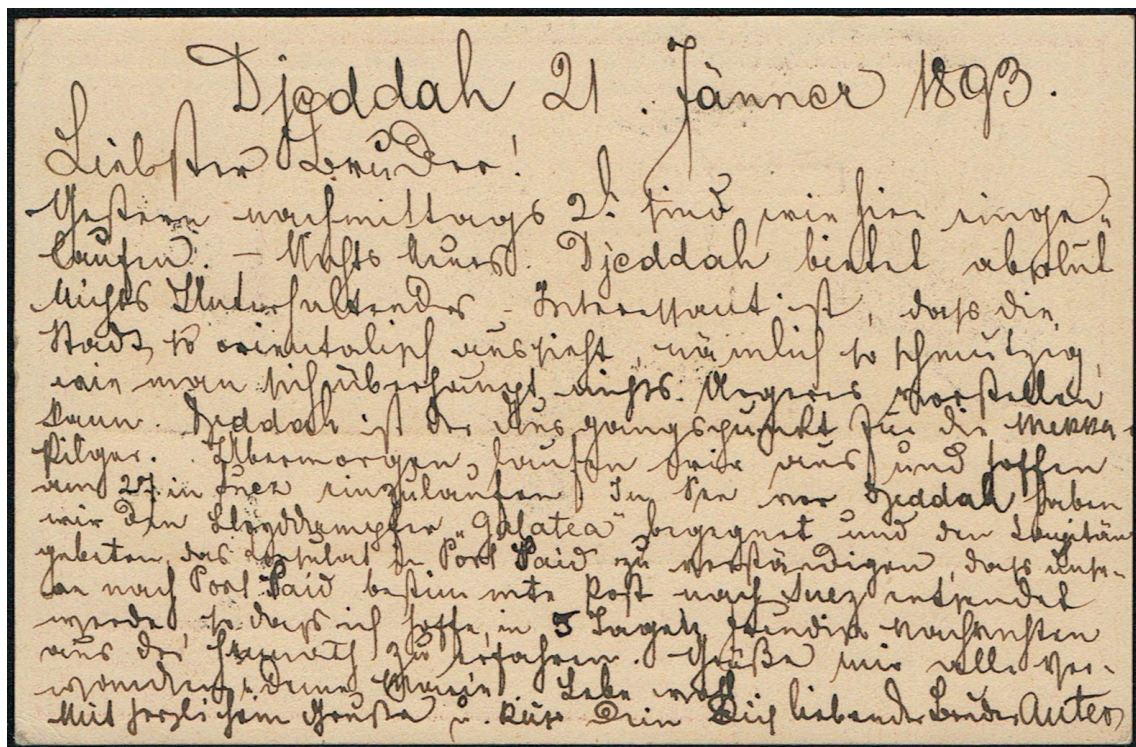 Djeddah 21. Jänner 1893.
Liebster Bruder!
Gestern nachmittags 2h sind wir hier einge-
laufen. – Nichts Neues. Djeddah bietet absolut
Nichts Unterhaltendes – Interessant ist, dass die
Stadt so orientalisch aussieht, nämlich so schmutzig,
wie man sich überhaupt nichts Aergeres vorstellen
kann. Djeddah ist der Ausgangspunkt für die Mekka-
Pilger. Übermorgen laufen wir aus und hoffen
am 27. in Suez einzulaufen. In See vor Djeddah haben
wir den Lloyddampfer „Galatea" begegnet und den Capitän
gebeten, das Consulat in Port Said zu verständigen, dass unse-
re nach Port Said bestimmte Post nach Suez entsendet
werde, so dass ich hoffe, in 5 Tagen freudige Nachrichten
aus der Heimath zu erfahren. Grüße mir alle Ver-
wandten u. Deine Lebe wohl
Mit herzlichem Gruße u. Kuss Dein Dich liebender Bruder Anton